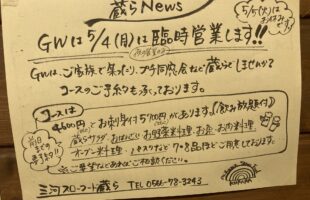 蔵らNews
GWは5/4(月)は臨時営業します!!
5/5(火)は
お休み
です。
GWは、ご家族で集ったり、プチ同窓会など蔵らでしませんか?
コースのご予約も承っております。
コースは
4500円とお刺身付5700円があります。(飲み放題付)
蔵らサラダ・おばんざい・お野菜料理・お魚・お肉料理
オーブン料理・パスタなど7~8品ほどご用意しております。
ご希望などあればご相談ください。
前日
までの
三河スローフード蔵ら TEL 0566-78-3243